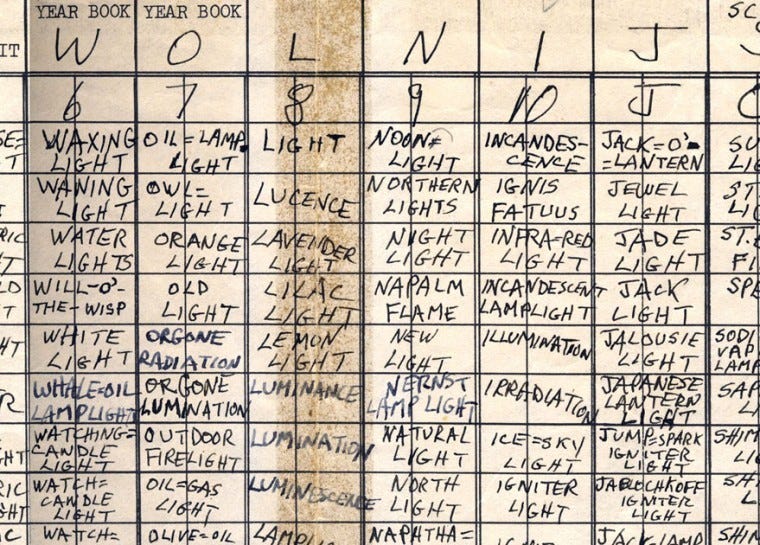 YEAR BOOK YEAR BOOK SC
IT W O L N I J
6 7 8 9 10 J
SE= WAXING OIL=LAMP. LIGHT NOON= INCANDES- JACK=O'- SU
T LIGHT LIGHT LIGHT CENCE =LANTERN LIG
WANING OWL= LUCENCE NORTHERN IGNIS JEWEL ST.
LIGHT LIGHT LIGHTS FATUUS LIGHT LIG
RIC WATER ORANGE LAVENDER NIGHT INFRA=RED JADE ST.E
T LIGHTS LIGHT LIGHT LIGHT LIGHT LIGHT FI
LD WILL-O'- OLD LILAC NAPALM INCANDESCENT JACK SPE
T THE-WISP LIGHT LIGHT FLAME LAMPLIGHT LIGHT
HT WHITE ORGONE LEMON NEW ILLUMINATION JALOUSIE SODI
LIGHT RADIATION LIGHT LIGHT LIGHT VAP
LAMP
R WHALE=OIL ORGONE LUMINANCE NERNST IRRADIATION JAPANESE SAP
LAMPLIGHT LUMINATION LAMP LIGHT LANTERN LI
LIGHT
WATCHING= OUTDOOR LUMINATION NATURAL ICE=SKY JUMP=SPARK SHIM
GHT CANDLE FIRELIGHT LIGHT LIGHT IGNITER LI
LIGHT LIGHT
RIC WATCH= OIL=GAS LUMINESCENCE NORTH IGNITER JABLOCHKOFF SHI
GHT CANDLE LIGHT LIGHT LIGHT IGNITER L
LIGHT LIGHT
C WATCH= OLIVE=OIL NAPHTHA= JACKLAMP SHI